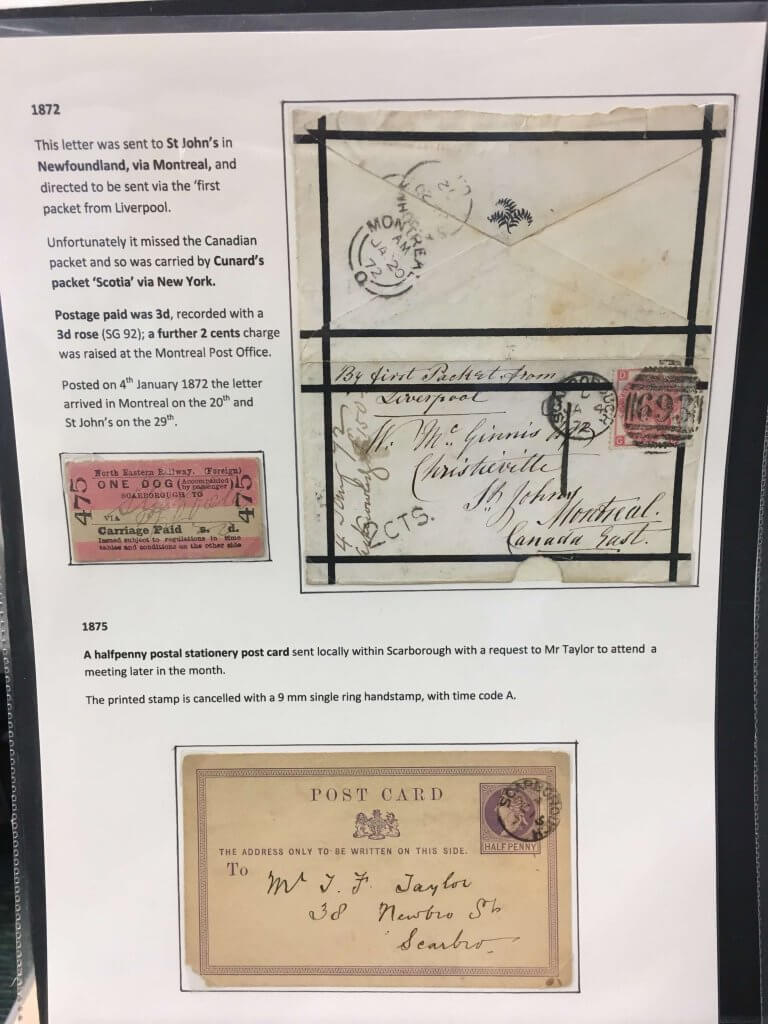 1872
This letter was sent to St John's in
Newfoundland, via Montreal, and
directed to be sent via the 'first
packet from Liverpool.
Unfortunately it missed the Canadian
packet and so was carried by Cunard's
packet 'Scotia' via New York.
Postage paid was 3d, recorded with a
3d rose (SG 92); a further 2 cents charge
was raised at the Montreal Post Office.
Posted on 4th January 1872 the letter
arrived in Montreal on the 20th and
St John's on the 29th.
MONTREAL
AM
JA 20
72
By first Packet from
Liverpool
SCARBOROUGH
C
JA 4
72
D
693
G
W. Mc Ginnis Esq
Christieville
St Johns
Montreal.
Canada East.
CTS.
475
North Eastern Railway. (Foreign)
ONE DOG (Accompanied by passenger)
SCARBOROUGH TO
VIA
Carriage Paid s. d.
Issued subject to regulations in time
tables and conditions on the other side
475
1875
A halfpenny postal stationery post card sent locally within Scarborough with a request to Mr Taylor to attend a
meeting later in the month.
The printed stamp is cancelled with a 9 mm single ring handstamp, with time code A.
POST CARD
THE ADDRESS ONLY TO BE WRITTEN ON THIS SIDE.
HALFPENNY
SCARBOROUGH
To
Mr T. F. Taylor
38 Newbro St
Scarbro